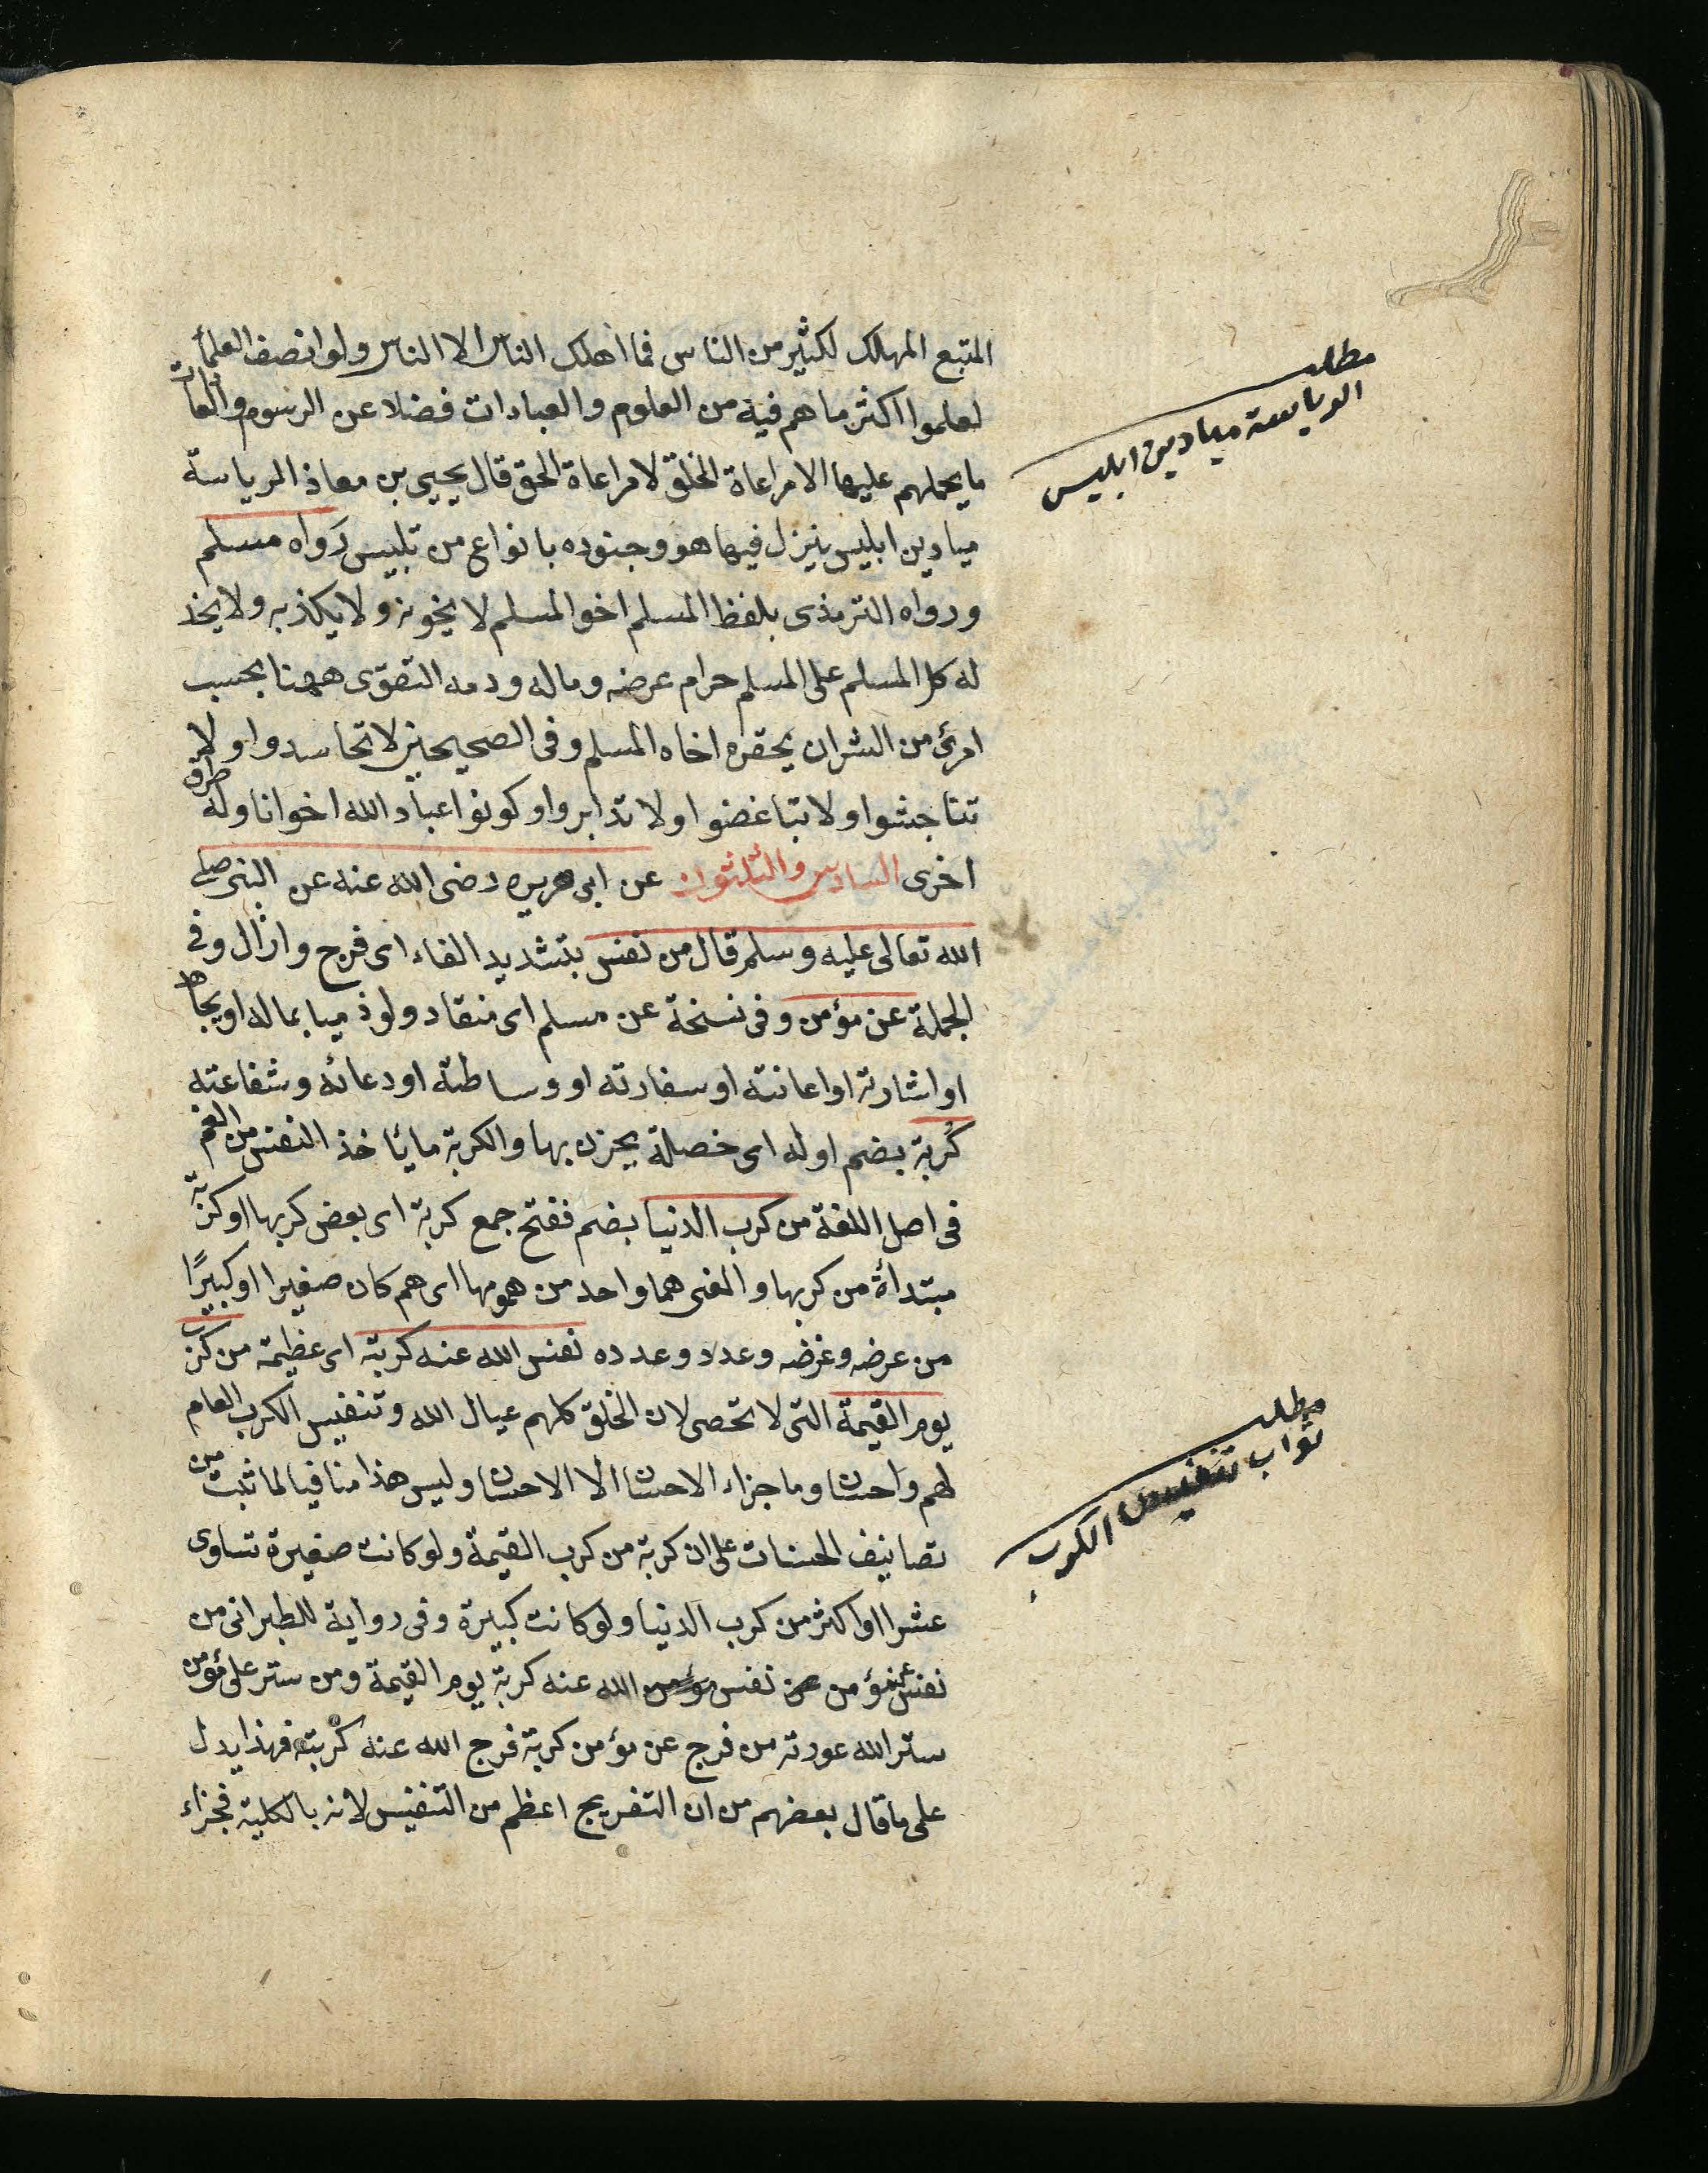 المتبع المهالك لكثير من الناس فما اهلك الناس الا الناس ولو انصف العلماء
لعلموا اكثر ما هم فيه من العلوم والعبادات فضلا عن الرسوم والعادات
ما يحملهم عليها الا مراعاة الخلق لا مراعاة الحق قال يحيى بن معاذ الرياسة
ميادين ابليس ينزل فيها هو وجنوده بانواع من تلبيس رواه مسلم
ورواه الترمذى بلفظ المسلم اخو المسلم لا يخونه ولا يكذبه ولا يخذ
له كل المسلم على المسلم حرام عرضه وماله ودمه التقوى ههنا بحسب
امرئ من الشر ان يحقره اخاه المسلم وفى الصحيحين لا تحاسدوا ولا
تناجشوا ولا تباغضوا ولا تدابروا وكونوا عباد الله اخوانا وله طرق
اخرى السادس والثلثون عن ابى هريره رضى الله عنه عن النبى صلى
الله تعالى عليه وسلم قال من نفس بتشديد الفاء اى فرج وازال وفى
الجملة عن مؤمن وفى نسخة عن مسلم اى منقاد ولو ذميا بماله او بجاهه
او اشارته او اعانته او سفارته او وساطته او دعائه وشفاعته
كربة بضم اوله اى خصلة يحزن بها والكربة ما يأخذ النفس من الغم
فى اصل اللغة من كرب الدنيا بضم ففتح جمع كربة اى بعض كربها او كربة
مبتدأة من كربها والمغنى هما واحد من همومها اى هم كان صغيرا او كبيرًا
من عرضه وغرضه وعدد وعدده نفس الله عنه كربة اى عظيمة من كرب
يوم القيمة التى لا تحصى لان الخلق كلهم عيال الله وتنفيس الكرب العام
لهم واحسان وما جزاء الاحسان الا الاحسان وليس هذا منافيا لما ثبت من
تصانيف الحسنات على ان كربة من كرب القيمة ولو كانت صغيرة تساوى
عشرا او اكثر من كرب الدنيا ولو كانت كبيرة وفى رواية للطبرانى من
نفس عن مؤمن نفس الله عنه كربة يوم القيمة ومن ستر على مؤمن
ستر الله عورته من فرج عن مؤمن كربة فرج الله عنه كربته فهذا يدل
على ما قال بعضهم من ان التفريج اعظم من التنفيس لانه بالكلية فجزاء
مطلب
الرياسة ميادين ابليس
مطلب
ثواب تنفيس الكرب